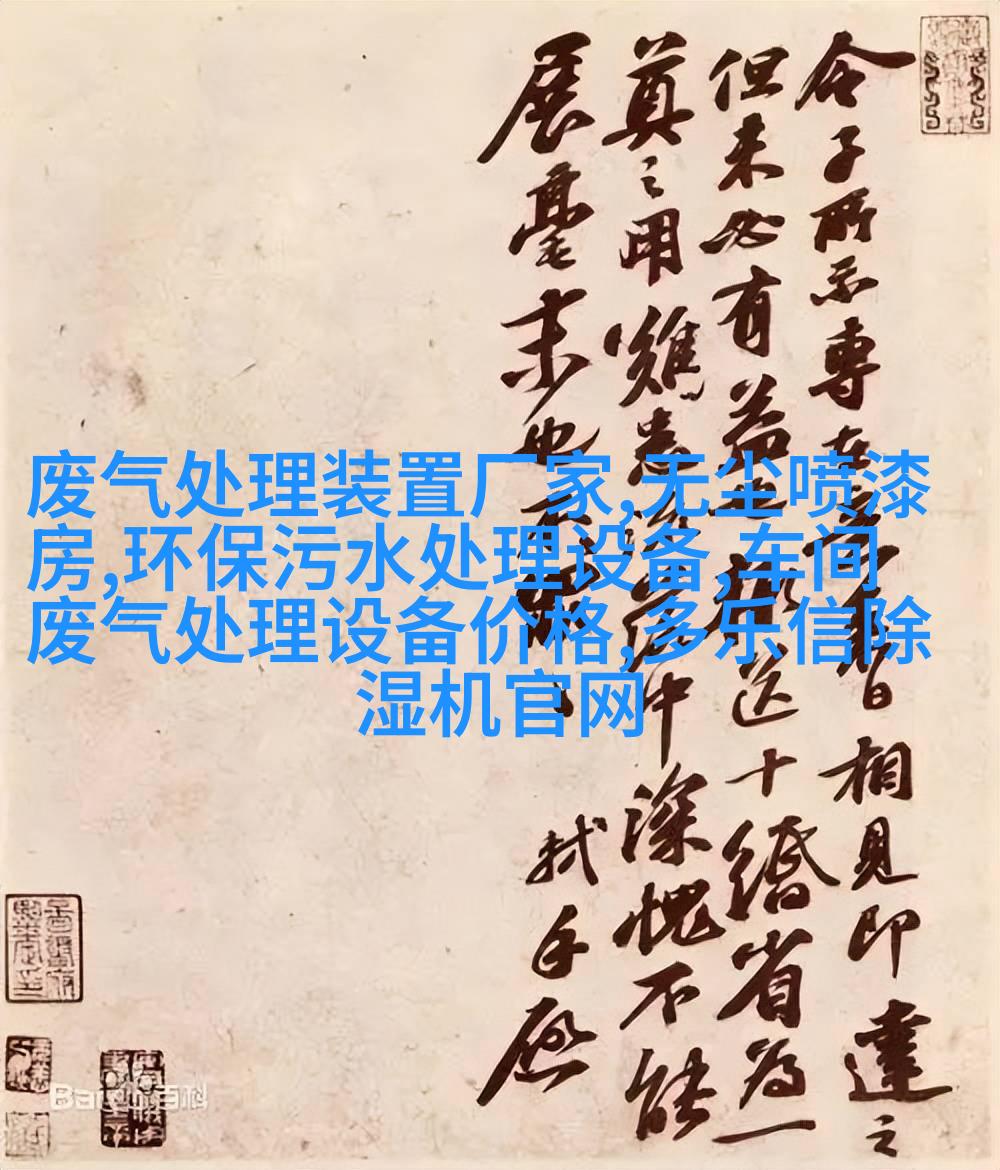 废气处理装置厂家,无尘喷漆
房,环保污水处理设备,车间
废气处理设备价格,多乐信除
湿机官网
令子所示專在日相見即達之
但未必有益送十縑省為一
奠之用難患中深愧不能
展毫末也
軾手啟
Bai百科